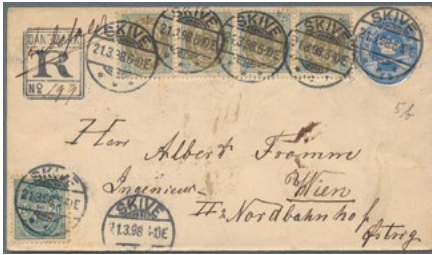 DANMARK
R
No 199
SKIVE
21.3.98 5-10E
SKIVE
21.3.98 5-10E
SKIVE
21.3.98 5-10E
SKIVE
21.3.98 5-10E
SKIVE
21.3.98
5/6
Herr Albert Fromme
Ingenieur
Wien
II Nordbahnhof
Østrig
SKIVE
21.3.98
SKIVE
21.3.98